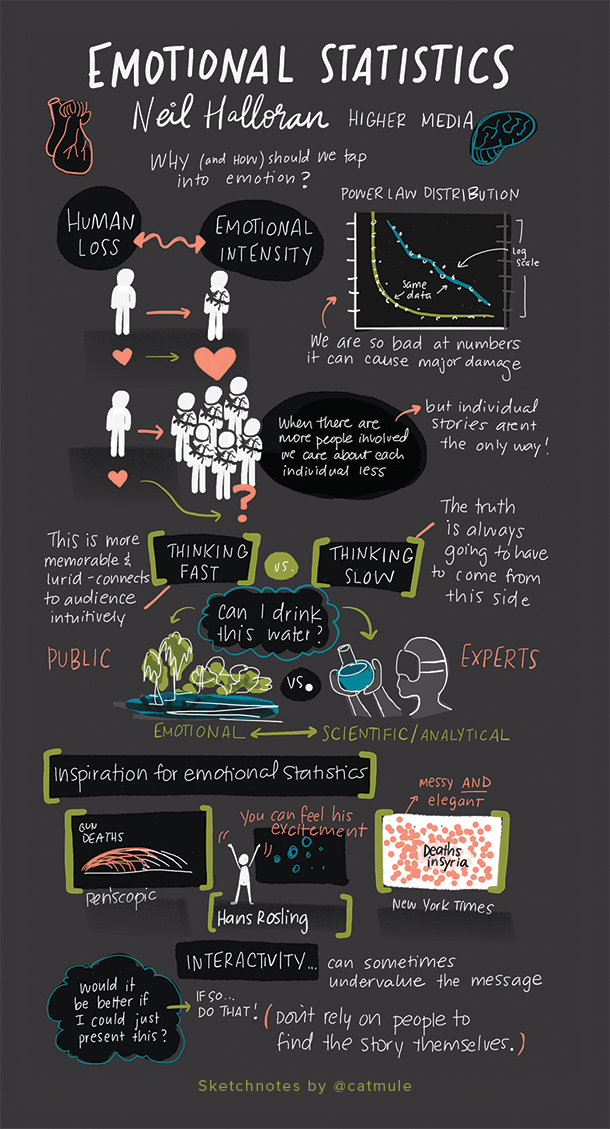 EMOTIONAL STATISTICS
Neil Halloran HIGHER MEDIA
WHY (and HOW) should we tap
into emotion?
HUMAN
LOSS
EMOTIONAL
INTENSITY
POWER LAW DISTRIBUTION
log
scale
same
data
We are so bad at numbers
it can cause major damage
When there are
more people involved
we care about each
individual less
but individual
stories arent
the only way!
?
This is more
memorable &
lurid - connects
to audience
intuitively
THINKING
FAST
VS.
THINKING
SLOW
The truth
is always
going to have
to come from
this side
Can I drink
this water?
PUBLIC
VS.
EXPERTS
EMOTIONAL
SCIENTIFIC/ANALYTICAL
Inspiration for emotional Statistics
GUN
DEATHS
Periscopic
You can feel his
excitement
Hans Rosling
messy AND
elegant
Deaths
in Syria
New York Times
INTERACTIVITY... can sometimes
undervalue the message
Would it
be better if
I could just
present this?
IF SO...
DO THAT!
(Don't rely on people to
find the story themselves.)
Sketchnotes by @catmule